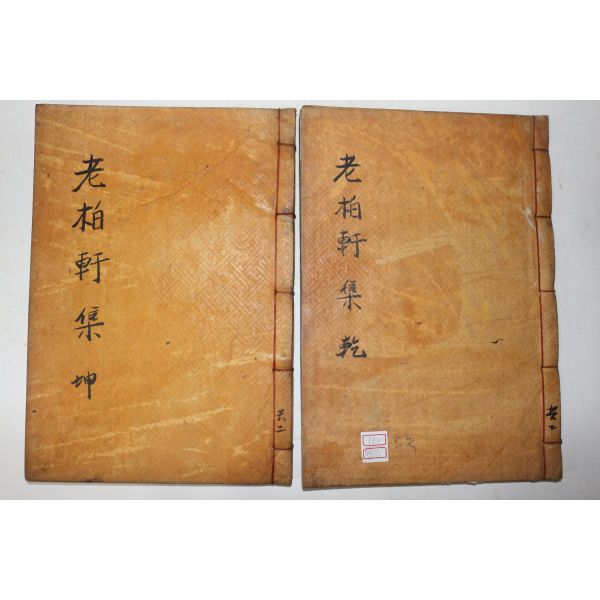 老柏軒集 乾
老柏軒集 坤
共二